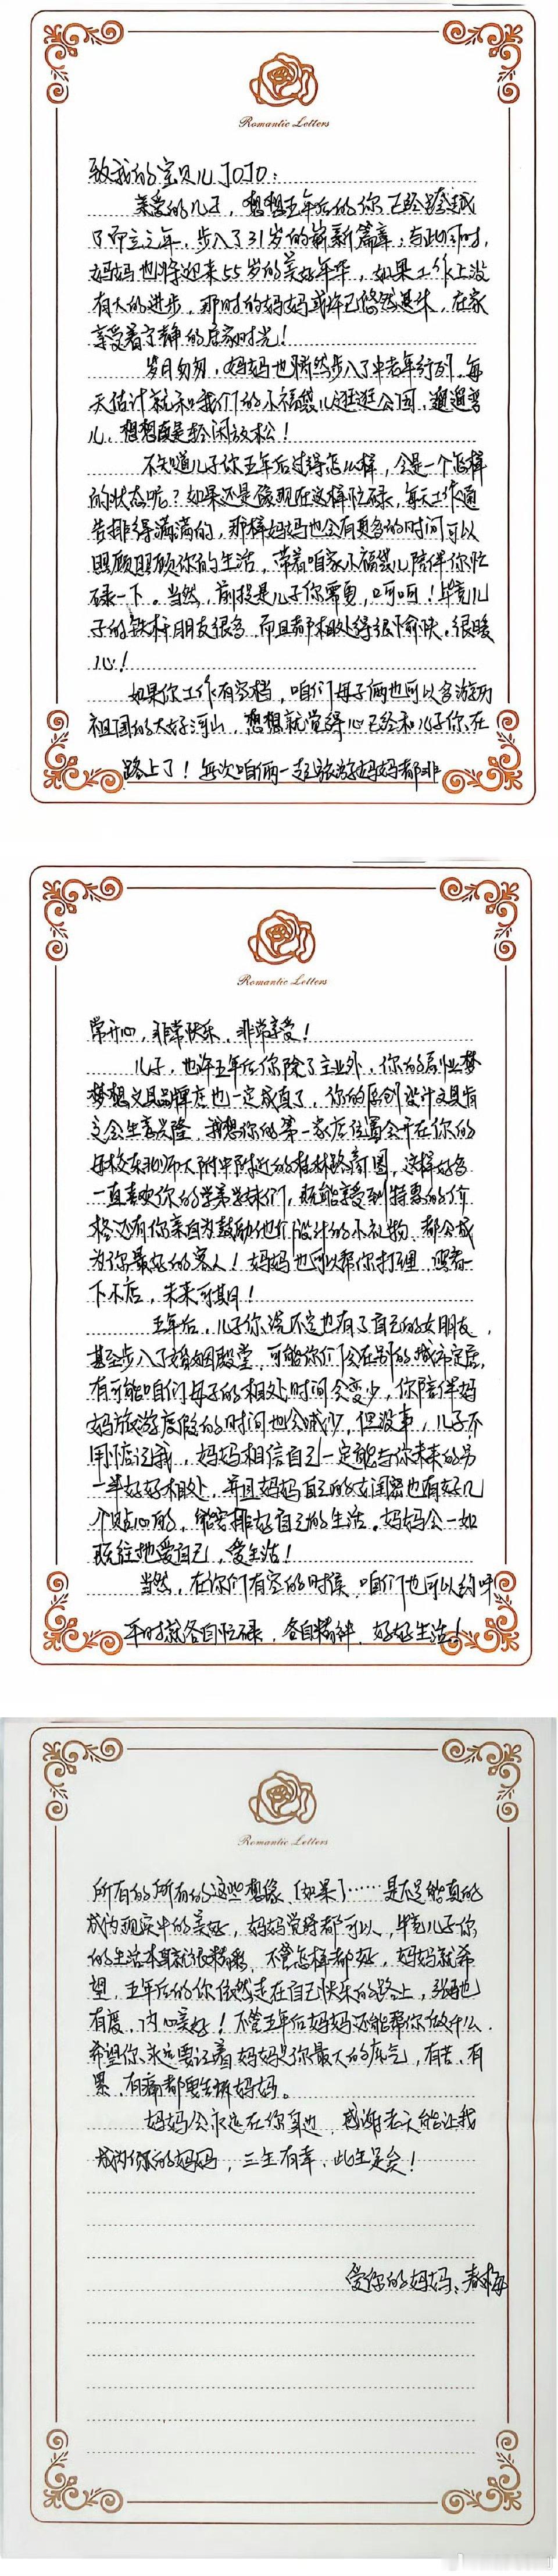 Romantic Letters
致我的宝贝儿JOJO：
亲爱的儿子，想想五年后的你已经跨越
了而立之年，步入了31岁的崭新篇章；与此同时，
妈妈也将迎来55岁的美好年华，如果工作上没
有大的进步，那时的妈妈或许已悠然退休，在家
享受着宁静的居家时光！
岁月匆匆，妈妈也悄然步入了中老年行列，每
天估计就和我们的小福袋儿逛逛公园，遛遛弯
儿，想想真是轻闲放松！
不知道儿子你五年后过得怎么样，会是一个怎样
的状态呢？如果还是像现在这样忙碌，每天工作通
告排得满满的，那样妈妈也会有更多的时间可以
照顾照顾你的生活，带着咱家小福袋儿陪伴你忙
碌一下。当然，前提是儿子你需要，呵呵！毕竟儿
子的铁杆朋友很多，而且都相处得很愉快，很暖
心！
如果你工作有空档，咱们母子俩也可以多游历
祖国的大好河山，想想就觉得心已经和儿子你在
路上了！每次咱俩一起旅游妈妈都非
Romantic Letters
常开心，非常快乐，非常享受！
儿子，也许五年后你除了主业外，你的副业梦
梦想文具品牌店也一定成真了，你的原创设计文具肯
定会生意兴隆，我想你的第一家店位置会开在你的
母校东北师大附中附近的桂林路商圈，这样好多
一直喜欢你的学弟学妹们，既能享受到特惠的价
格还有你亲自为鼓励他们设计的小礼物，都会成
为你最好的客人！妈妈也可以帮你打理，照看一
下小店，未来可期！
五年后，儿子你说不定也有了自己的女朋友，
甚至步入了婚姻殿堂，可能你们会在别的城市定居，
有可能咱们母子的相处时间会变少，你陪伴妈
妈旅游度假的时间也会减少，但没事，儿子不
用惦记我，妈妈相信自己一定能与你未来的另
一半好好相处，并且妈妈自己的女闺密也有好几
个贴心的，能安排好自己的生活。妈妈会一如
既往地爱自己，爱生活！
当然，在你们有空的时候，咱们也可以约呀
平时就各自忙碌，各自精神，好好生活！
Romantic Letters
所有的所有的这些想像，〔如果〕……是不是能真的
成为现实中的美好，妈妈觉得都可以，毕竟儿子你
的生活本身就很精彩，不管怎样都好，妈妈就希
望，五年后的你依然走在自己快乐的路上，张弛
有度，内心美好！不管五年后妈妈还能帮你做什么，
希望你永远要记着妈妈是你最大的底气，有苦、有
累、有痛都要告诉妈妈。
妈妈会永远在你身边，感谢老天能让我
成为你的妈妈，三生有幸，此生足矣！
爱你的妈妈：春梅